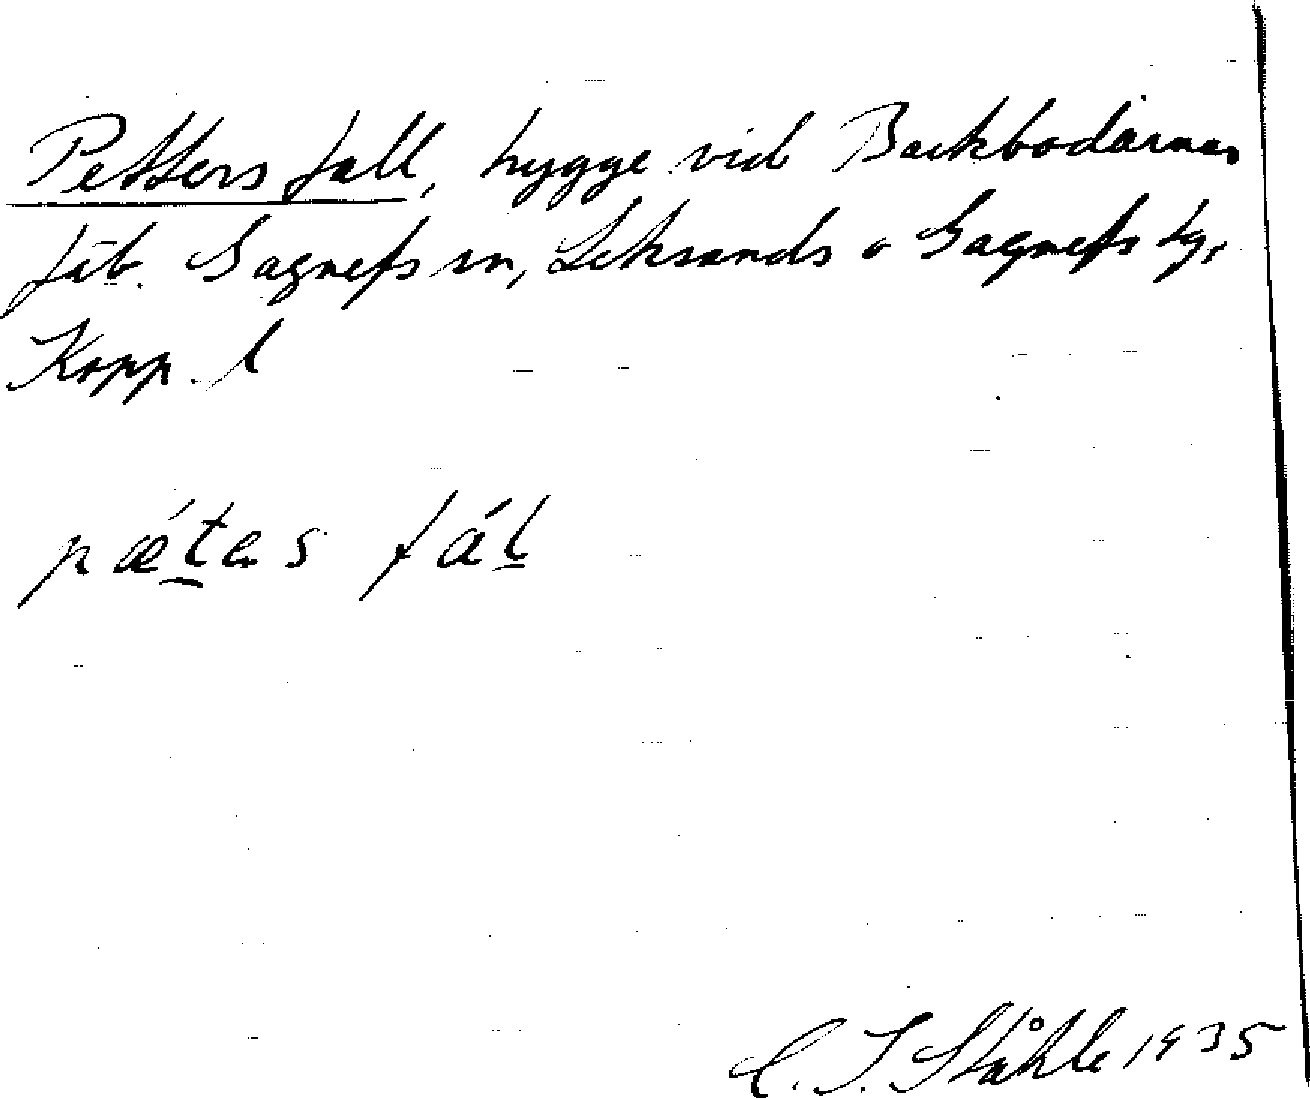 Petters fall, hygge vid Backbodarnas
fäb. Gagnefs sn, Leksands o Gagnefs tg,
Kopp. l
pǽtas fál
C. I. Ståhle 1935